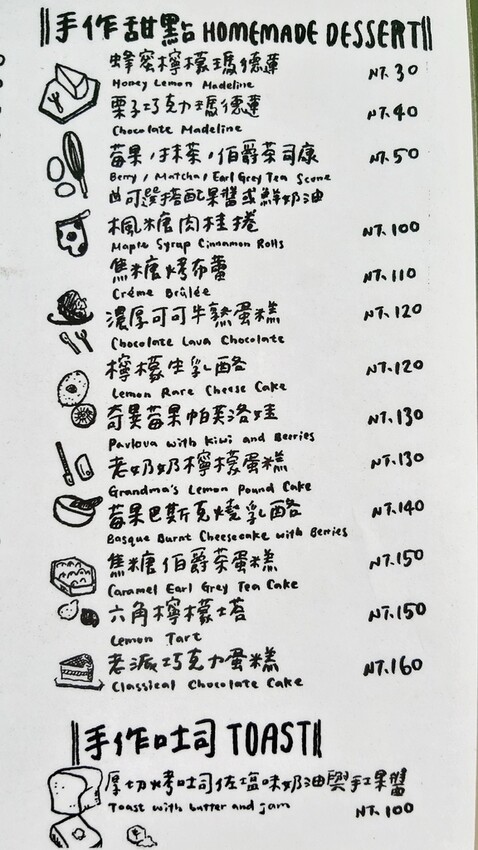 手作甜點 HOMEMADE DESSERT
蜂蜜檸檬瑪德蓮 NT.30
Honey Lemon Madeline
栗子巧克力瑪德蓮 NT.40
Chocolate Madeline
莓果/抹茶/伯爵茶司康 NT.50
Berry / Matcha / Earl Grey Tea Scone
皆可選搭配果醬或鮮奶油
楓糖肉桂捲 NT.100
Maple Syrup Cinnamon Rolls
焦糖烤布蕾 NT.110
Créme Brûlée
濃厚可可半熟蛋糕 NT.120
Chocolate Lava Chocolate
檸檬生乳酪 NT.120
Lemon Rare Cheese Cake
奇異莓果帕芙洛娃 NT.130
Pavlova with Kiwi and Berries
老奶奶檸檬蛋糕 NT.130
Grandma's Lemon Pound Cake
莓果巴斯克燒乳酪 NT.140
Basque Burnt Cheesecake with Berries
焦糖伯爵茶蛋糕 NT.150
Caramel Earl Grey Tea Cake
六角檸檬塔 NT.150
Lemon Tart
老派巧克力蛋糕 NT.160
Classical Chocolate Cake
手作吐司 TOAST
厚切烤吐司佐塩味奶油與手工果醬
Toast with butter and jam NT.100